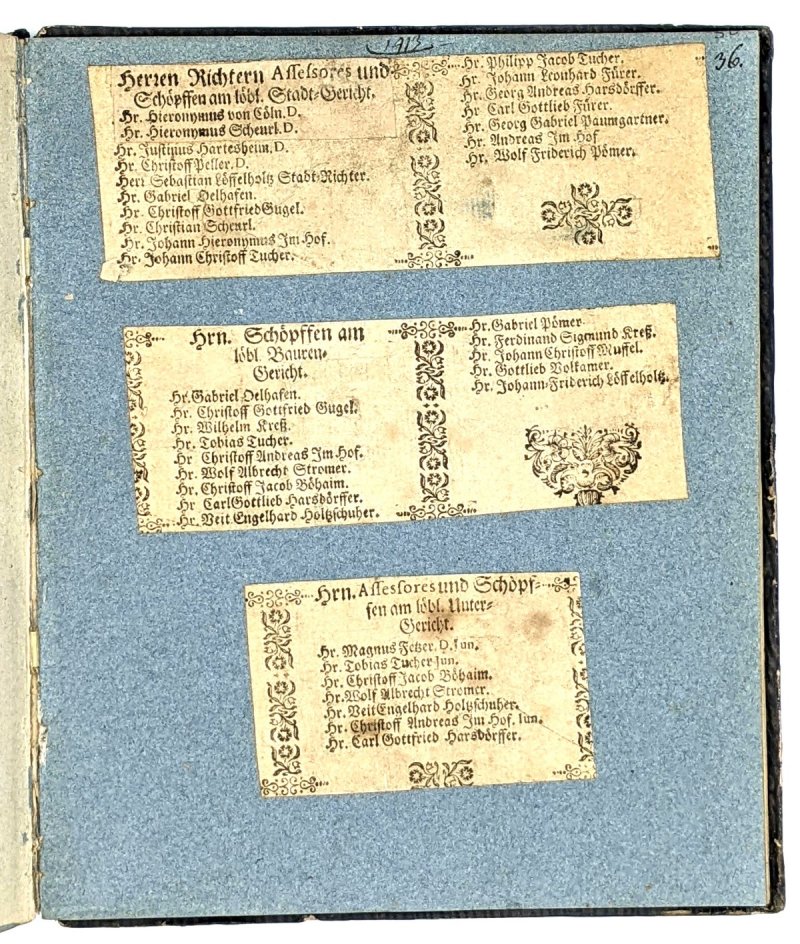 1713.
36.
Herren Richtern Assessores und
Schöpffen am löbl. Stadt-Gericht.
Hr. Hieronymus von Cöln. D.
Hr. Hieronymus Scheurl. D.
Hr. Justinus Hartesheim. D.
Hr. Christoff Peller. D.
Herr Sebastian Löffelholtz Stadt-Richter.
Hr. Gabriel Oelhafen.
Hr. Christoff Gottfried Gugel.
Hr. Christian Scheurl.
Hr. Johann Hieronymus Im Hof.
Hr. Johann Christoff Tucher.
Hr. Philipp Jacob Tucher.
Hr. Johann Leonhard Fürer.
Hr. Georg Andreas Harsdörffer.
Hr Carl Gottlieb Fürer.
Hr. Georg Gabriel Paumgartner.
Hr. Andreas Im Hof
Hr. Wolf Friderich Pömer.
Hrn. Schöpffen am
löbl. Bauren-
Gericht.
Hr. Gabriel Oelhafen.
Hr. Christoff Gottfried Gugel.
Hr. Wilhelm Kreß.
Hr. Tobias Tucher.
Hr Christoff Andreas Im Hof.
Hr. Wolf Albrecht Stromer.
Hr. Christoff Jacob Böhaim.
Hr Carl Gottlieb Harsdörffer.
Hr. Veit Engelhard Holtzschuher.
Hr. Gabriel Pömer
Hr. Ferdinand Sigmund Kreß.
Hr. Johann Christoff Muffel.
Hr. Gottlieb Volkamer.
Hr. Johann-Friderich Löffelholtz.
Hrn. Assessores und Schöpf-
fen am löbl. Unter-
Gericht.
Hr. Magnus Fetzer. D. Jun.
Hr. Tobias Tucher Jun.
Hr. Christoff Jacob Böhaim.
Hr. Wolf Albrecht Stromer.
Hr. Veit Engelhard Holtzschuher.
Hr. Christoff Andreas Im Hof. Jun.
Hr. Carl Gottfried Harsdörffer.